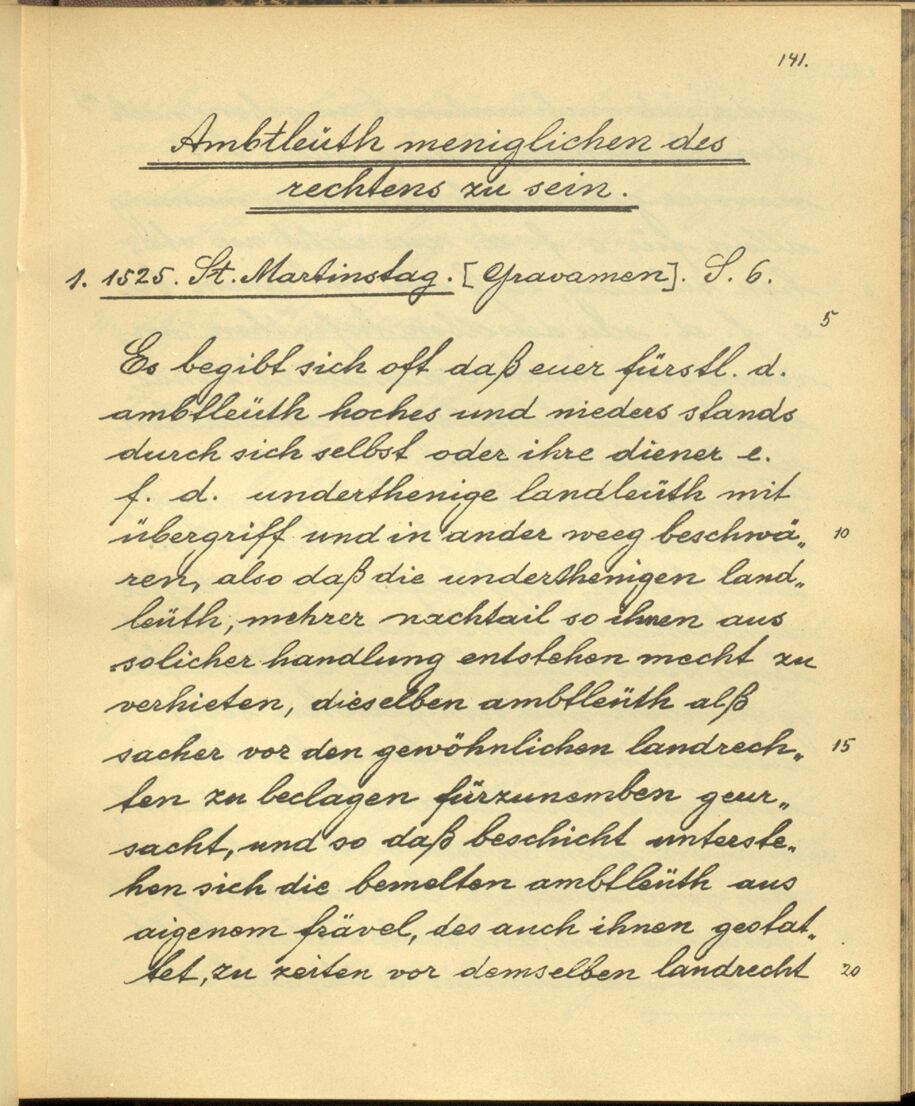 141.
Ambtleüth meniglichen des
rechtens zu sein.
1. 1525. St. Martinstag. [Gravamen]. S. 6.
5
Es begibt sich oft daß euer fürstl. d.
ambtleüth hoches und nieders stands
durch sich selbst oder ihre diener e.
f. d. underthenige landleüth mit
übergriff und in ander weeg beschwä„ 10
ren, also daß die underthenigen land„
leüth, mehrer nachtail so ihnen aus
solicher handlung entstehen mecht zu
verhieten, dieselben ambtleüth alß
sacher vor den gewöhnlichen landrech„ 15
ten zu beclagen fürzunemben geur„
sacht, und so daß beschicht unterste„
hen sich die bemelten ambtleüth aus
aigenem frävel, des auch ihnen gestat„
tet, zu zeiten vor demselben landrecht 20